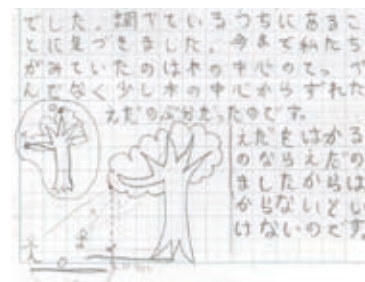 でした。調べているうちにあるこ
とに見づきました。今まで私たち
がみていたのは木の中心のてっぺ
んでなく少し木の中心からずれた
えだのぶ分だったのです。
えだをはかる
のならえだの
ましたからは
からないとい
けないのです。